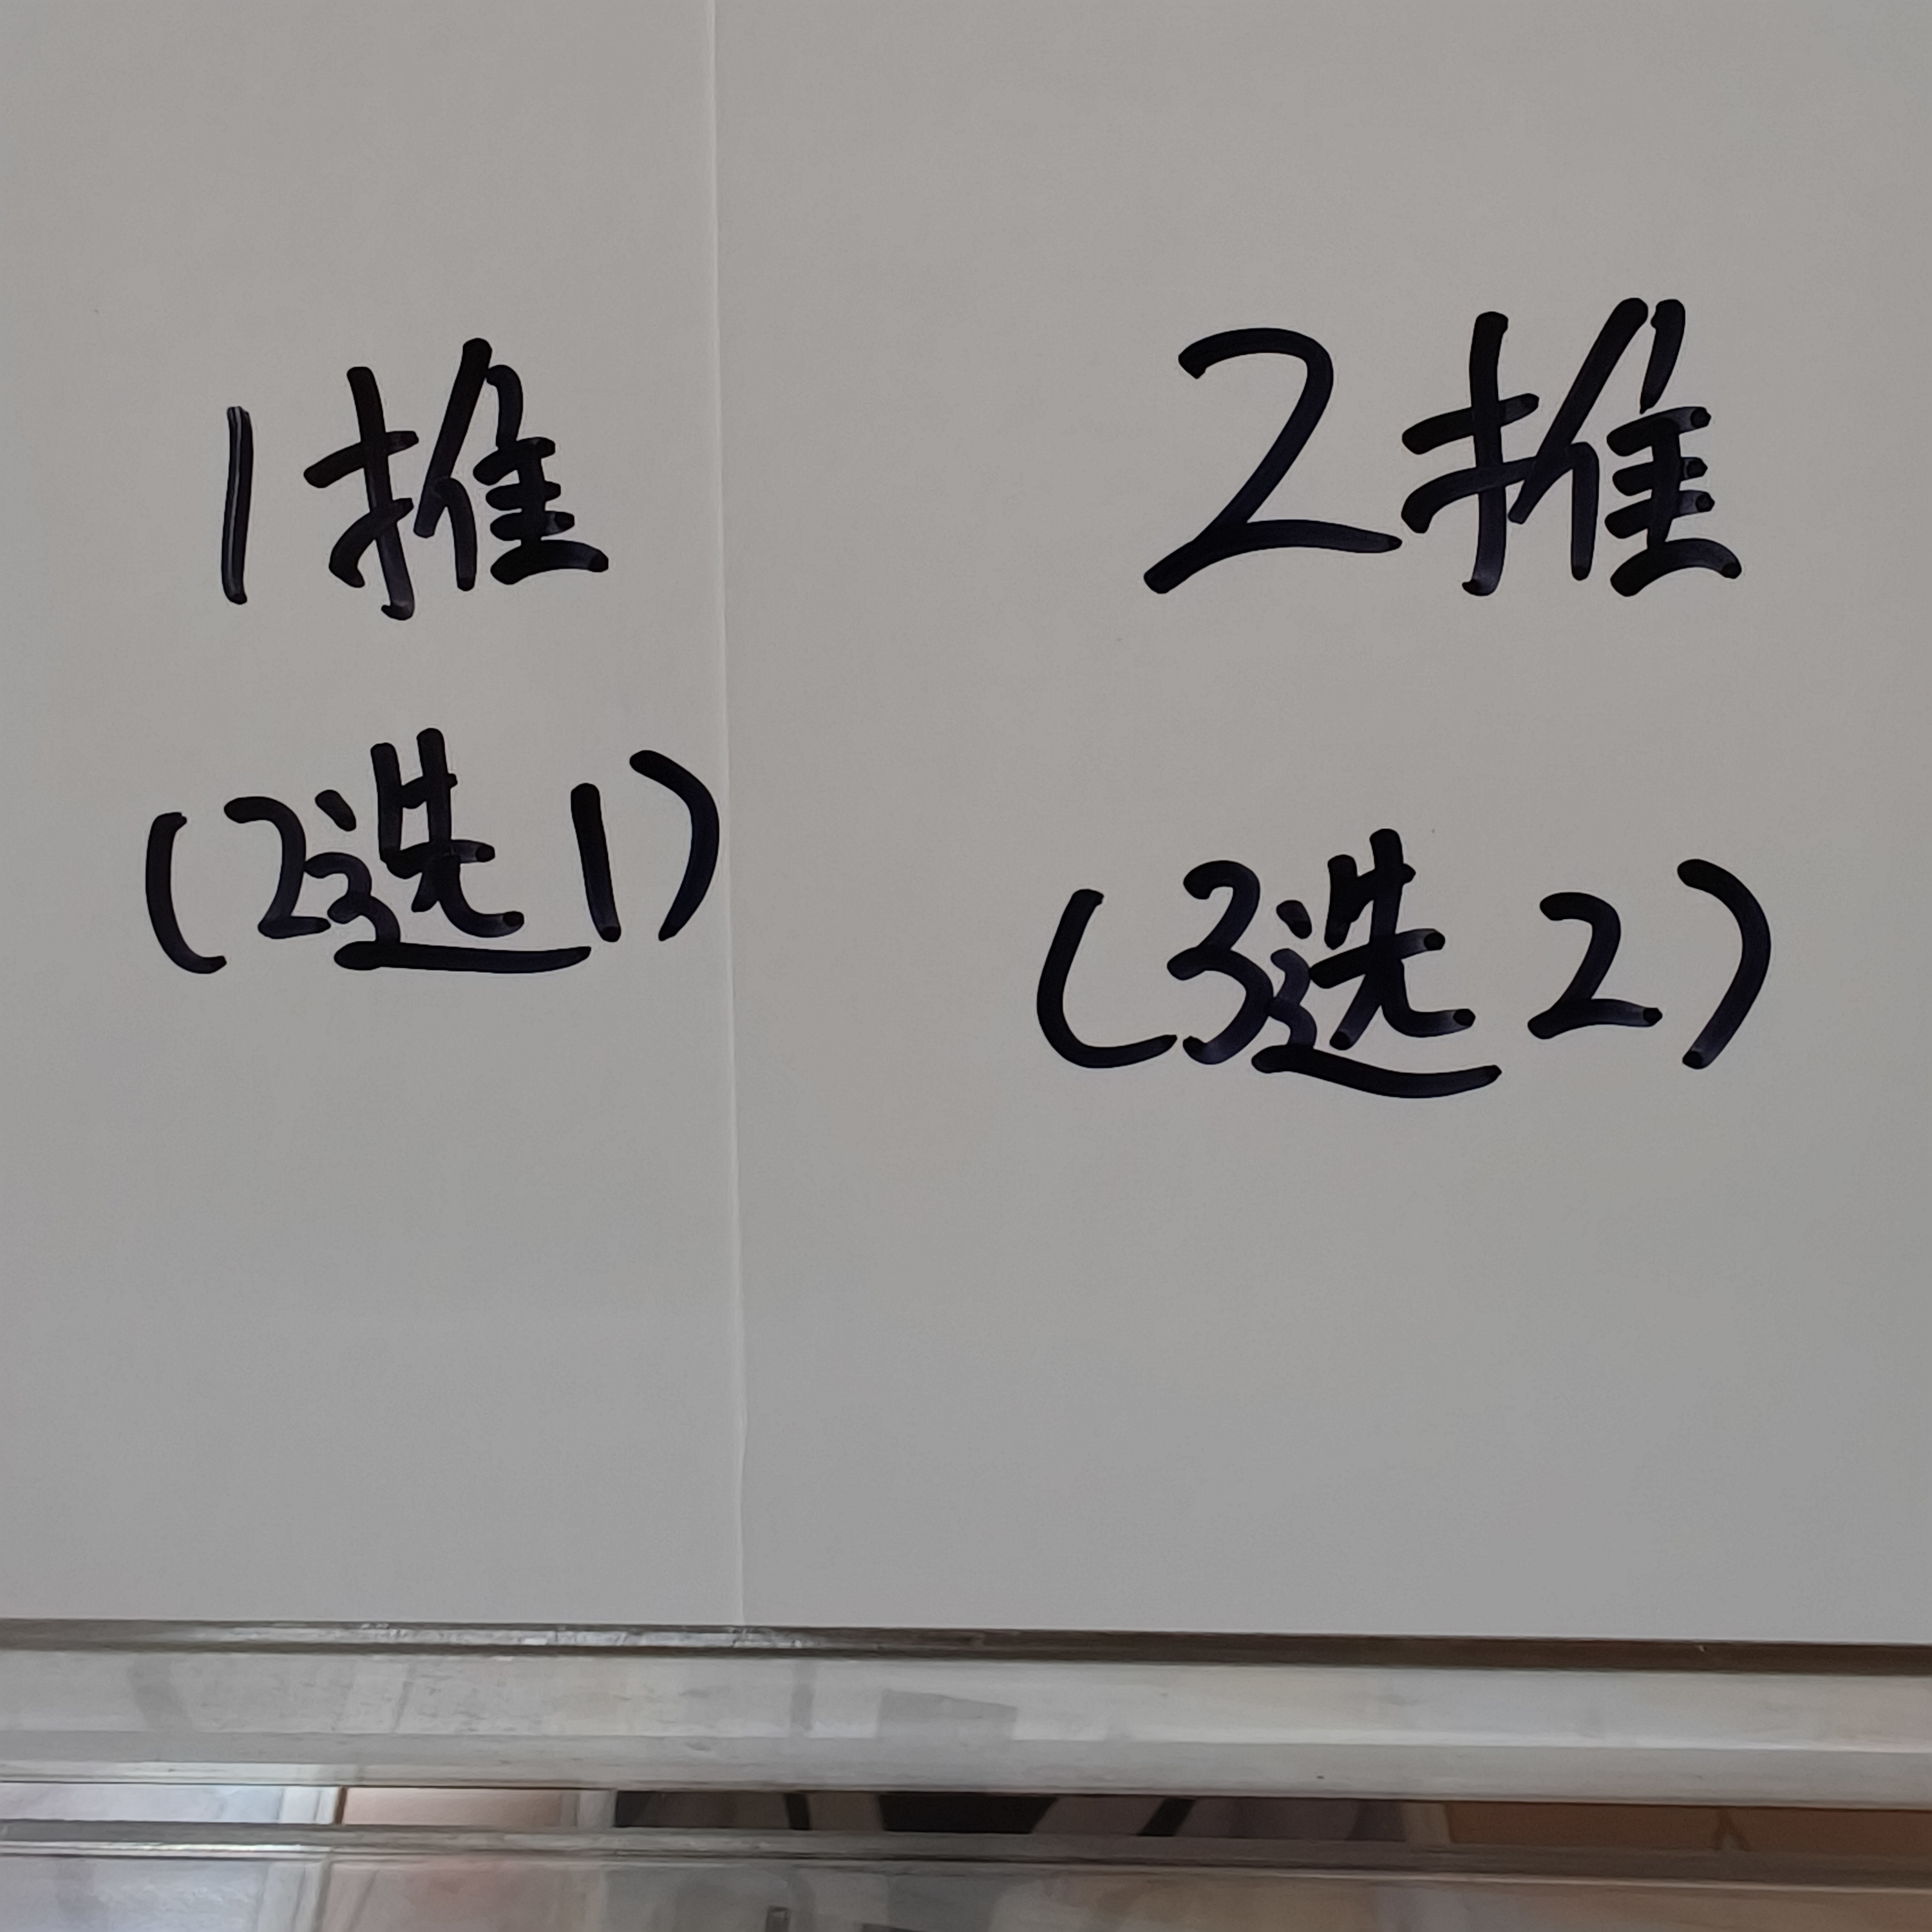 1推
(2选1)
2推
(3选2)